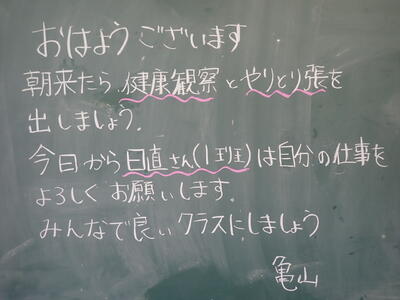 おはようございます
朝来たら、健康観察とやりとり張を
出しましょう。
今日から日直さん(1班)は自分の仕事を
よろしくお願いします。
みんなで良いクラスにしましょう
亀山